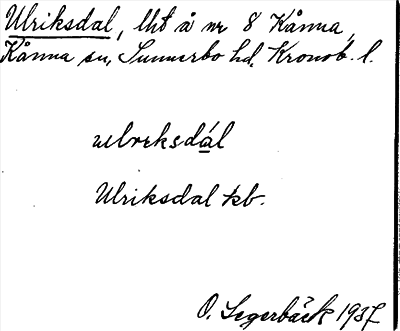 Ulriksdal, lht å nr 8 Kånna,
Kånna sn, Sunnerbo hd, Kronob. l.
ulreksdál
Ulriksdal kb.
O. Segerbäck 1937